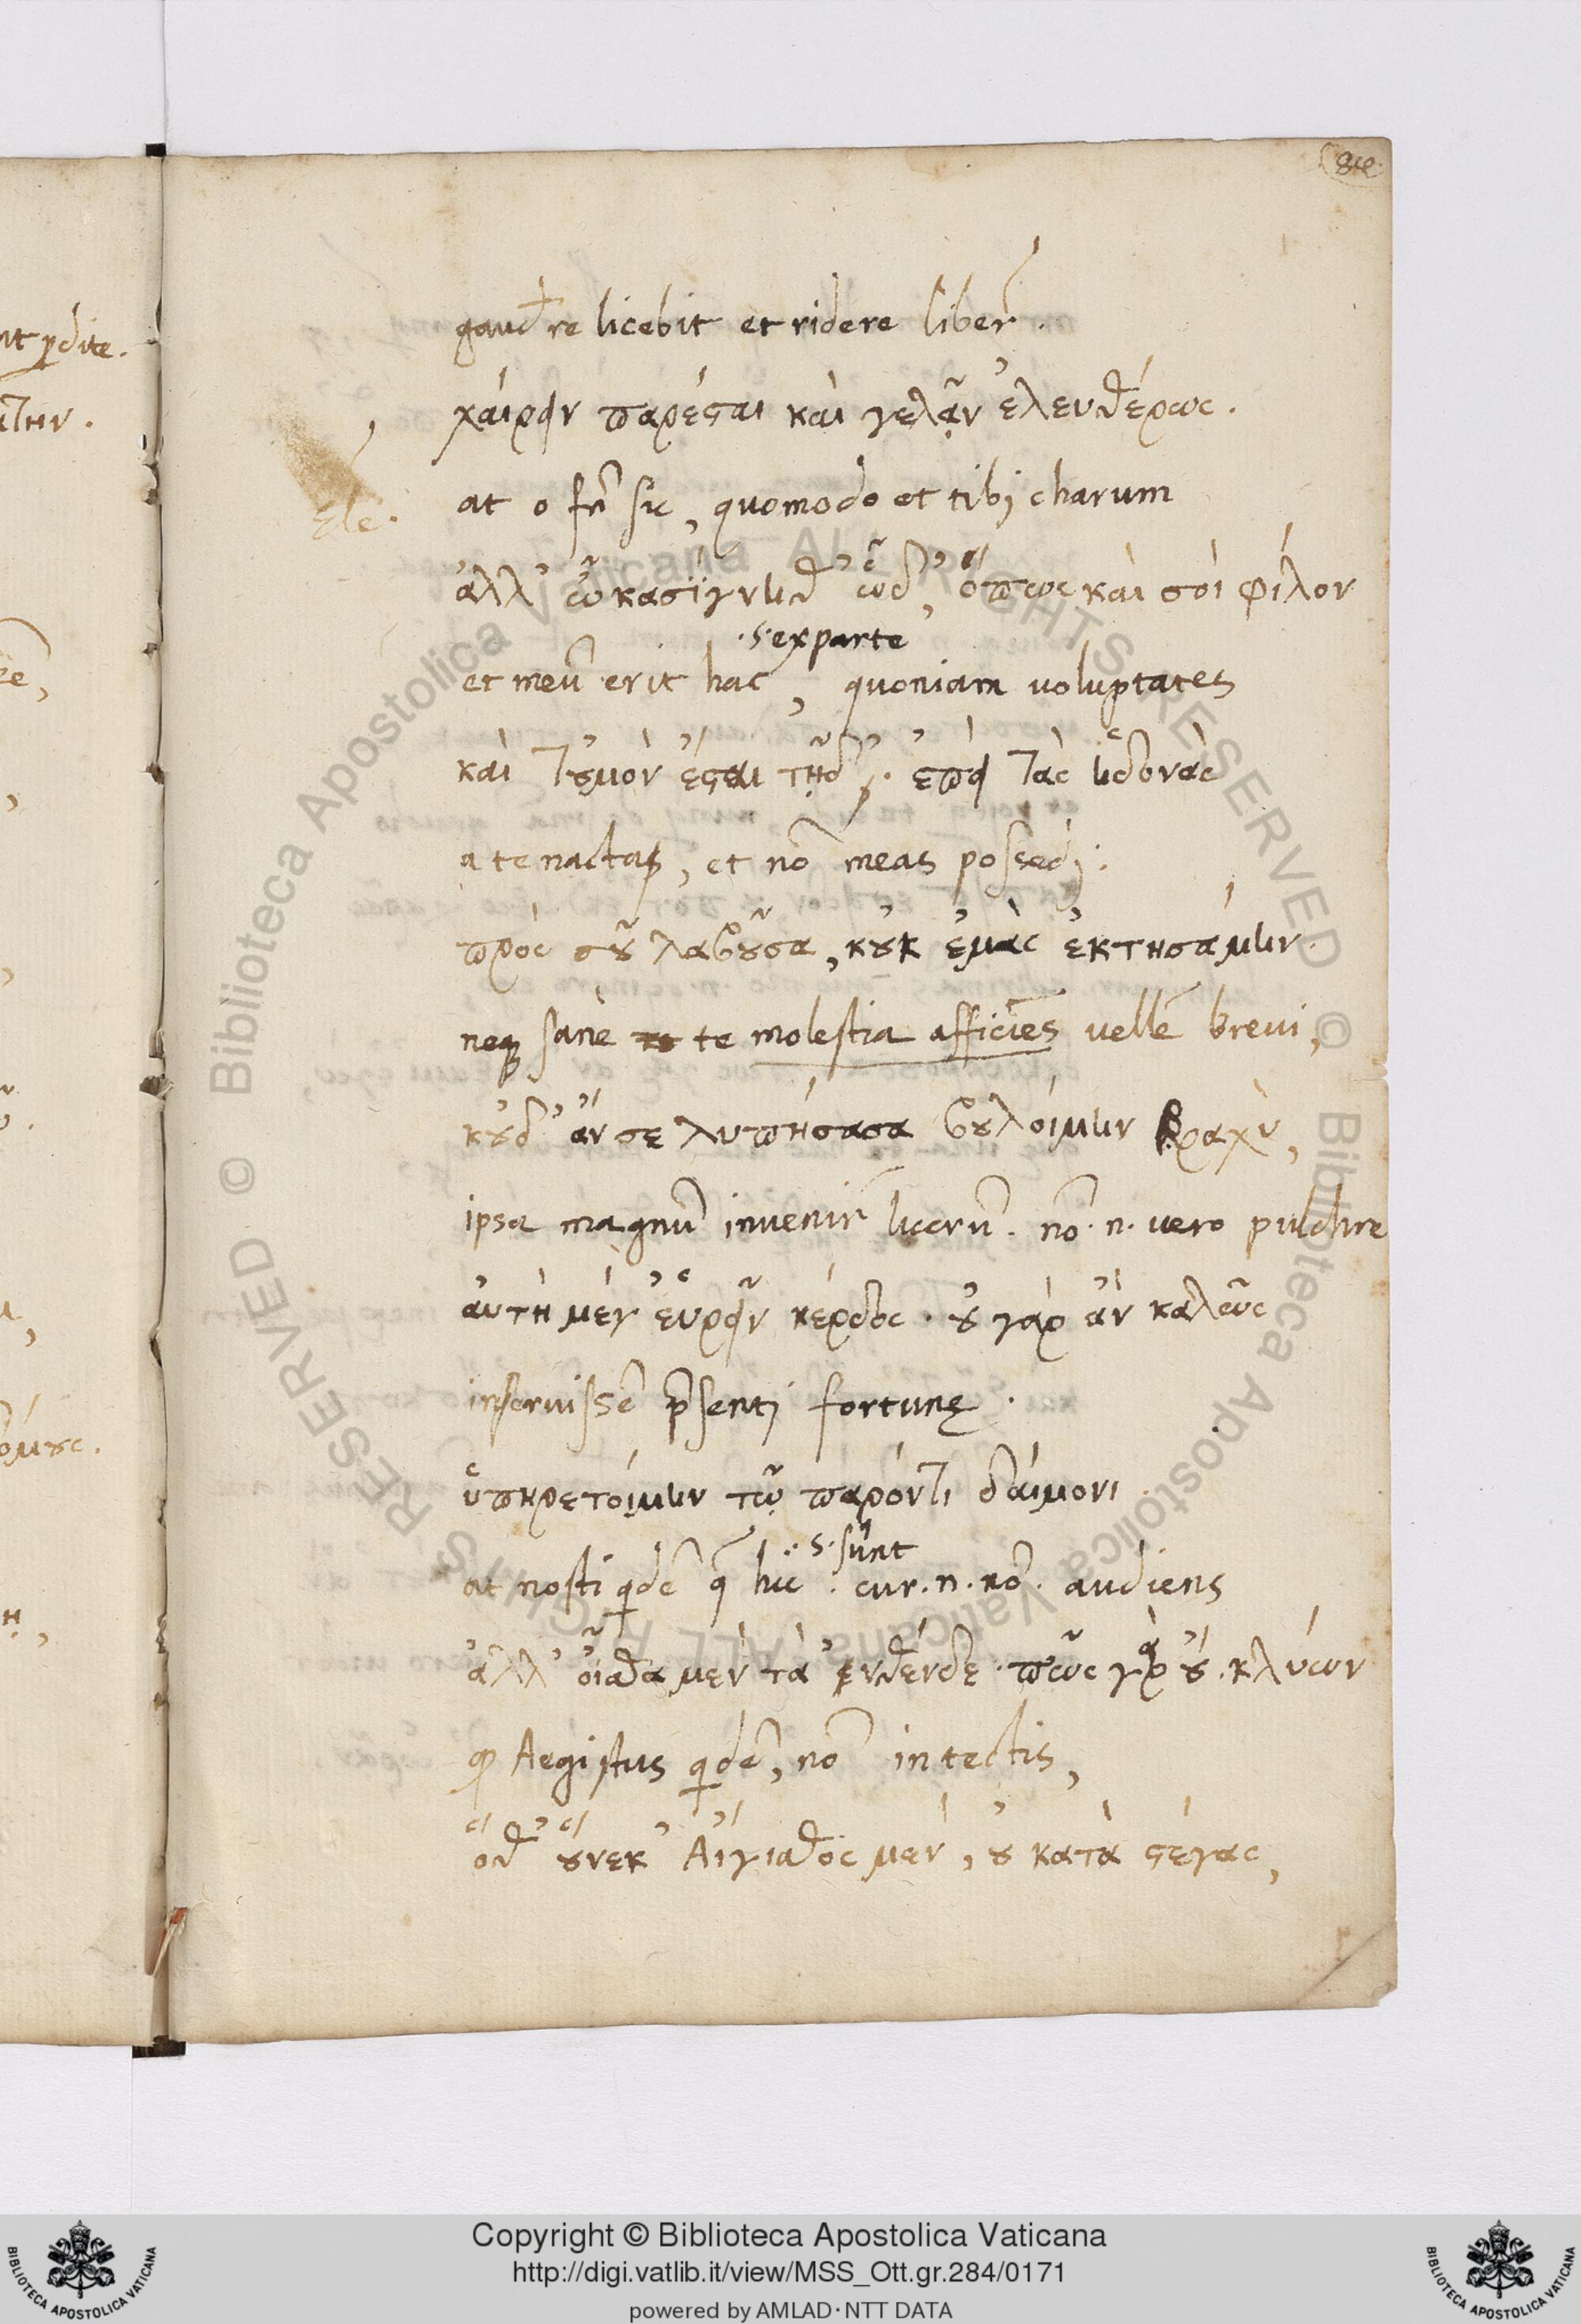 84
gaud're licebit et ridere liber̄.
χαίρειν παρέςαι καὶ γελᾷν ἐλευθέρως.
Ele.
at o fr̄ sic, quomodo et tibj charum
ἀλλ' ὦ κασίγνηθ' ὧδ', ὅπως καὶ σοὶ φίλον
.s. ex parte
et meū erit hac, quoniam voluptates
καὶ τȣ̓μὸν ἔςαι τῇδ', ἐπεὶ τὰς ἡδονὰς
a te nactas, et nō meas possedj.
πρὸς σȣ͂ λαβȣ͂σα, κȣ̓κ ἐμὰς ἐκτησάμην.
neq; sane te molestia afficiēs vellē brevi,
κȣ̓δ' ἄν σε λυπήσασα βȣλοίμην βραχὺ,
ipsa magnū invenir̄ lucrū. nō .n. vero pulchre
ἀυτὴ μέγ' ἑυρεῖν κέρδος. ȣ̓ γὰρ ἂν καλῶς
inservissē p̄senti fortunę.
ὑπηρετοίμην τῷ παρόντι δαίμονι.
.s. sunt
at nosti qdē q̄ hic. cur .n. nō. audiens
ἀλλ' οἶσθα μὲν τὰ ἐνθένδε. πῶς γὰρ ȣ̓́. κλύων
φ Aegistus qdē, nō in tectis,
ὅθ' ȣ̔́νεκ' Αἴγισθος μὲν, ȣ̓ κατὰ ςέγας,
nt pdite.
ιτην.
όμȣς.
Copyright © Biblioteca Apostolica Vaticana
http://digi.vatlib.it/view/MSS_Ott.gr.284/0171
powered by AMLAD·NTT DATA
BIBLIOTECA APOSTOLICA VATICANA
BIBLIOTECA APOSTOLICA VATICANA
© Biblioteca Apostolica Vaticana ALL RIGHTS RESERVED
© Biblioteca Apostolica Vaticana ALL RIGHTS RESERVED